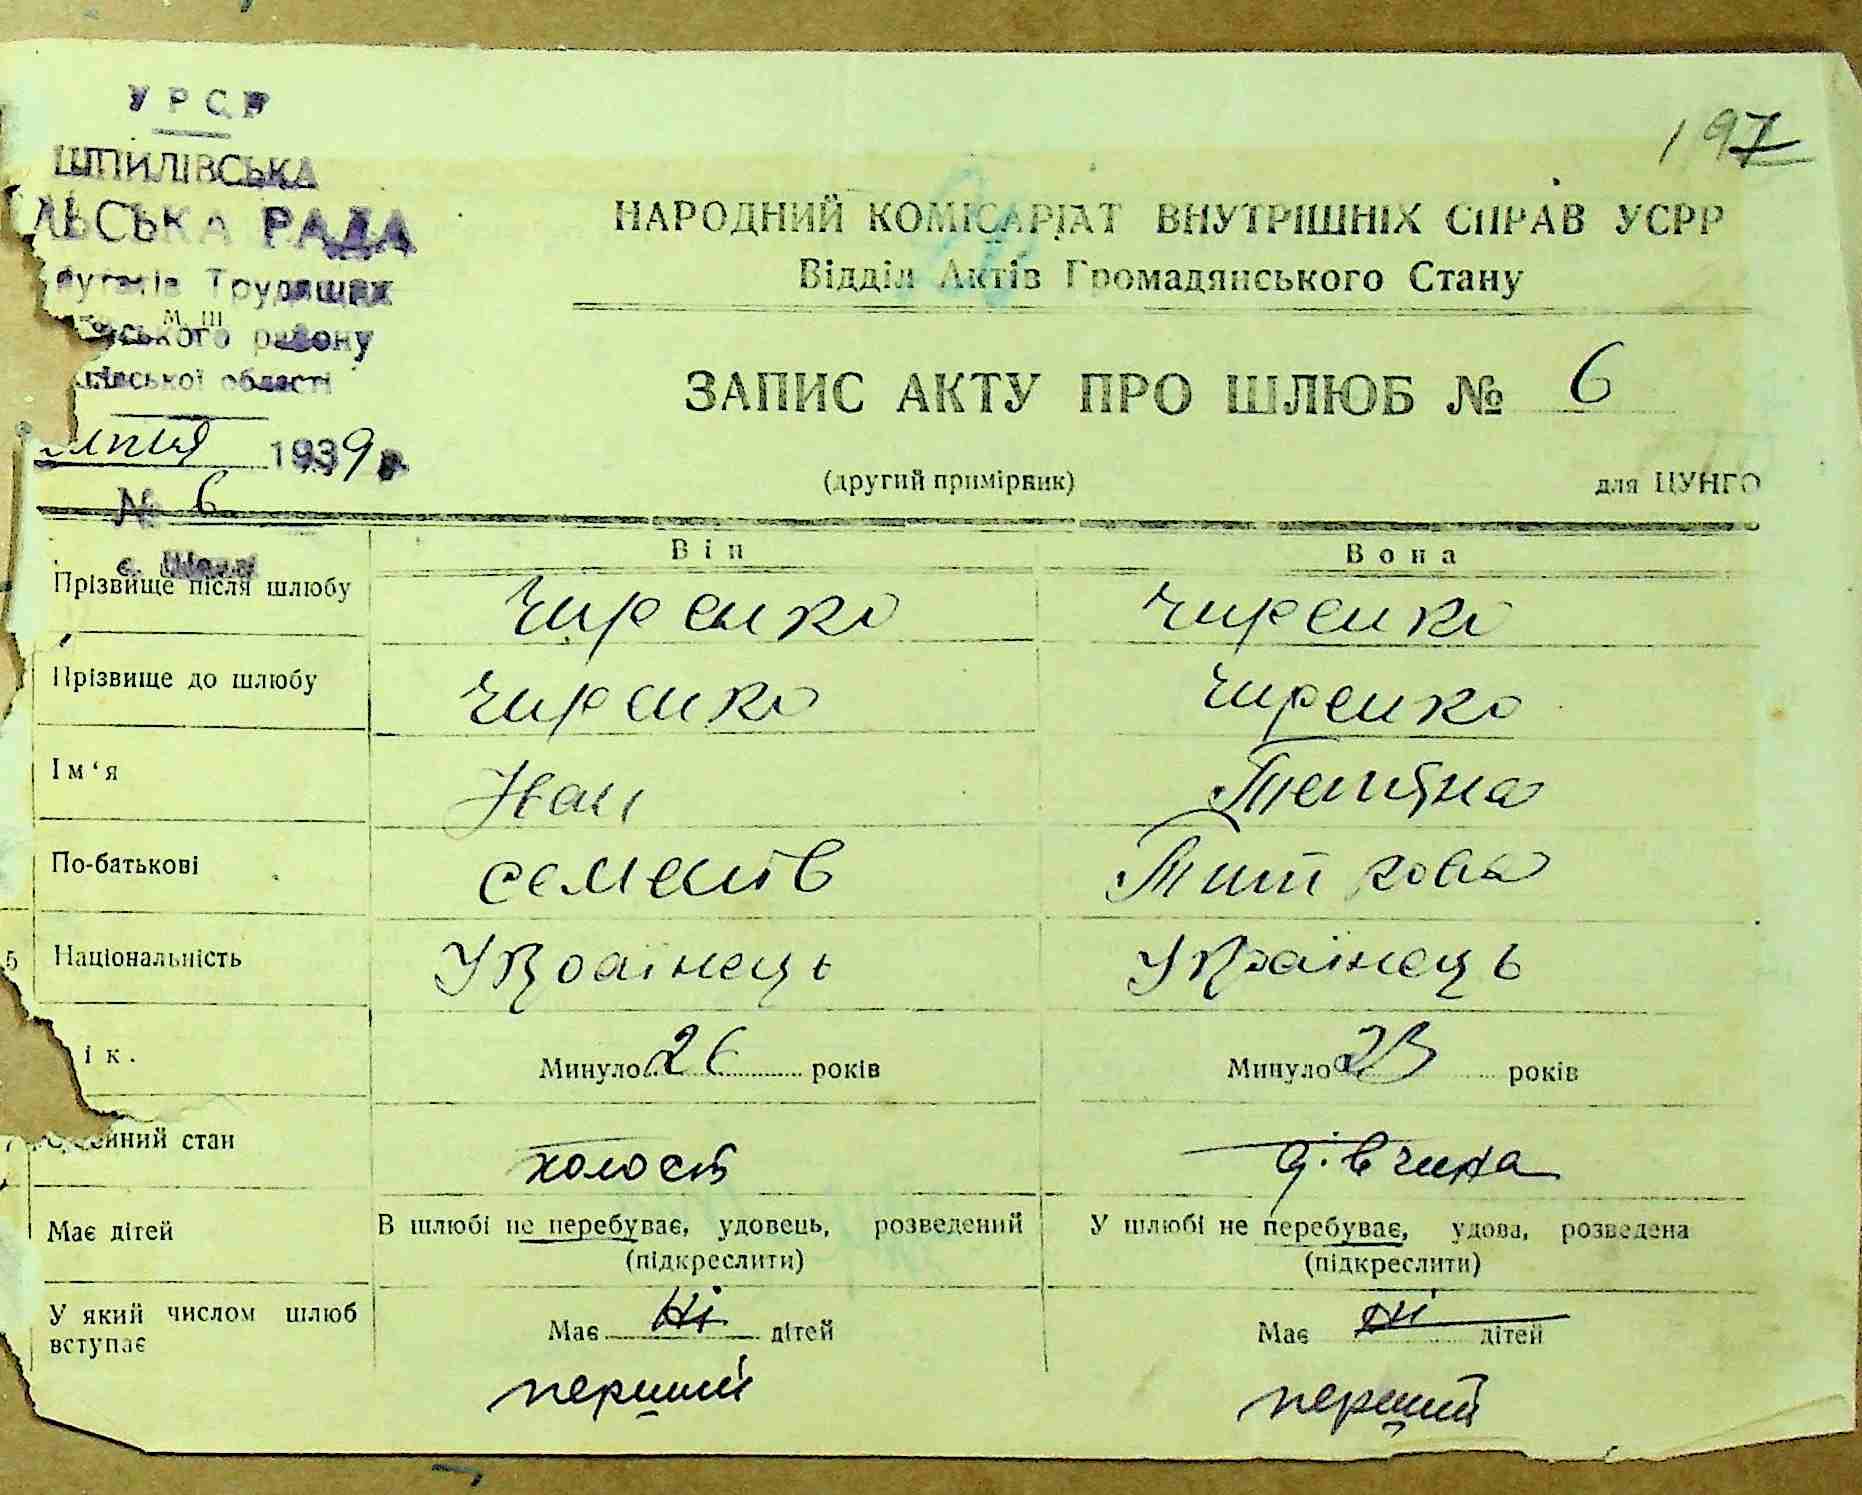 УРСР
197
ШПИЛІВСЬКА
РАДА
НАРОДНИЙ КОМІСАРІАТ ВНУТРІШНІХ СПРАВ УСРР
Відділ Актів Громадянського Стану
Трудящих
М. Ш
району
області
ЗАПИС АКТУ ПРО ШЛЮБ № 6
1939 р
(другий примірник) для ЦУНГО
№ 6
Він Вона
Прізвище після шлюбу Чиренко Чиренко
Прізвище до шлюбу Чиренко Чиренко
Ім'я Иван Тетяна
По-батькові Семенів Титковна
5 Національність Українець Українець
ік. Минуло 26 років Минуло 23 років
7 стан холост дівчина
Має дітей В шлюбі не перебуває, удовець, розведений У шлюбі не перебуває, удова, розведена
(підкреслити) (підкреслити)
У який числом шлюб вступає Має ні дітей Має ні дітей
перший перший